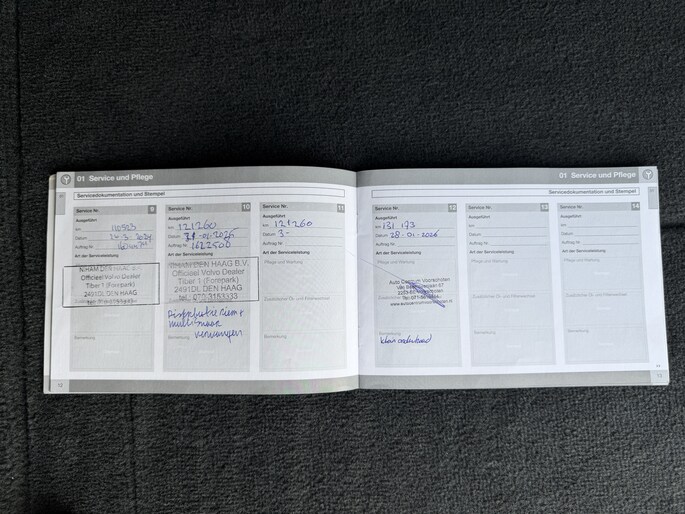 01 Service und Pflege
Servicedokumentation und Stempel
Service Nr. 9
Ausgeführt
km 110523
Datum
Auftrag Nr
Art der Serviceleistung
NIHAM DEN HAAG B.V.
Officieel Volvo Dealer
Tiber 1 (Forepark)
2491DL DEN HAAG
Service Nr. 10
Ausgeführt
km 121260
Datum
Auftrag Nr 1622500
Art der Serviceleistung
NIHAM DEN HAAG B.V.
Officieel Volvo Dealer
Tiber 1 (Forepark)
2491DL DEN HAAG
tel. 070-3153333
Distributie riem +
multisnaar
vervangen
Bemerkung
Service Nr. 11
Ausgeführt
km 121260
Datum 3-
Auftrag Nr
Art der Serviceleistung
Pflege und Wartung
Zusätzliche Öl- und Filterwechsel
Bemerkung
12
01 Service und Pflege
Servicedokumentation und Stempel
Service Nr. 12
Ausgeführt
km 131 173
Datum 28-01-2026
Auftrag Nr
Art der Serviceleistung
Pflege und Wartung
Auto Centrum Voorschoten
Zusätzliche Öl- und Filterwechsel
Bemerkung
klein onderhoud
Service Nr. 13
Ausgeführt
km
Datum
Auftrag Nr
Art der Serviceleistung
Pflege und Wartung
Zusätzliche Öl- und Filterwechsel
Bemerkung
Service Nr. 14
Ausgeführt
km
Datum
Auftrag Nr
Art der Serviceleistung
Pflege und Wartung
Zusätzliche Öl- und Filterwechsel
Bemerkung
13